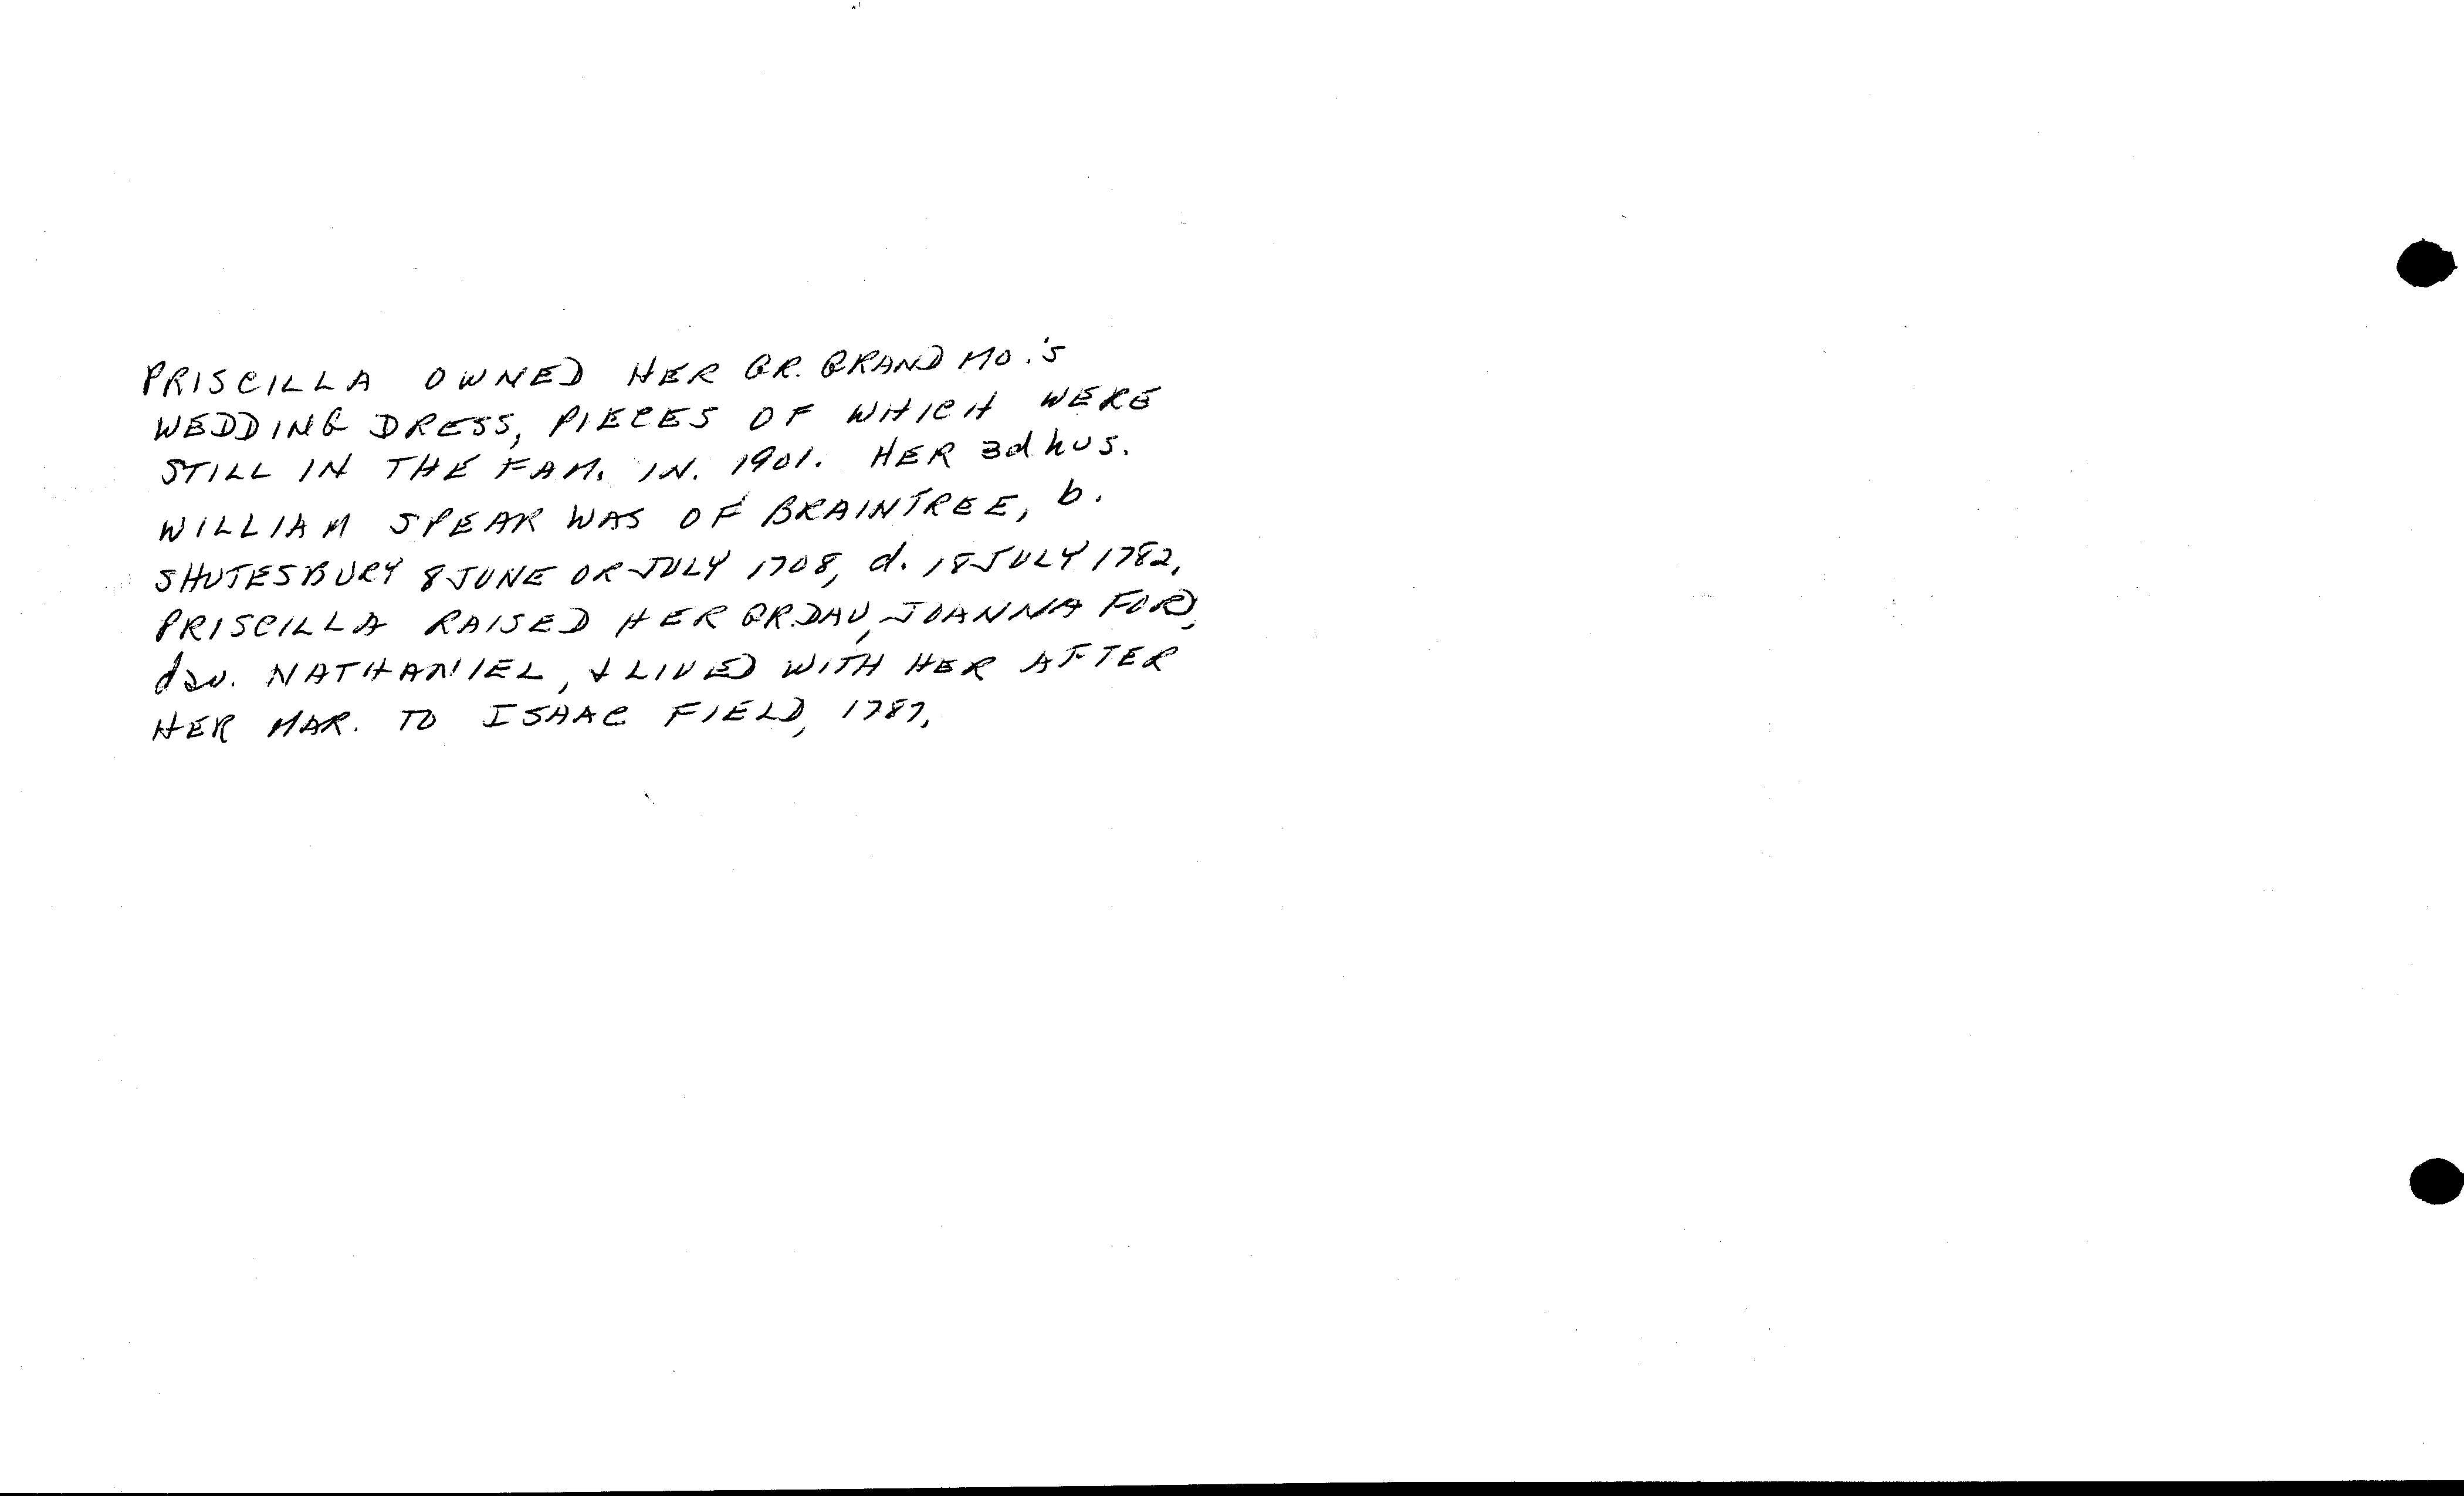 PRISCILLA OWNED HER GR. GRAND MO.'S
WEDDING DRESS, PIECES OF WHICH WERE
STILL IN THE FAM. IN. 1901. HER 3d hus.
WILLIAM SPEAR WAS OF BRAINTREE, b.
SHUTESBURY 8 JUNE OR JULY 1708, d. 18 JULY 1782.
PRISCILLA RAISED HER GR.DAU, JOANNA FORD,
dau. NATHANIEL, & LIVED WITH HER AFTER
HER MAR. TO ISAAC FIELD, 1787.